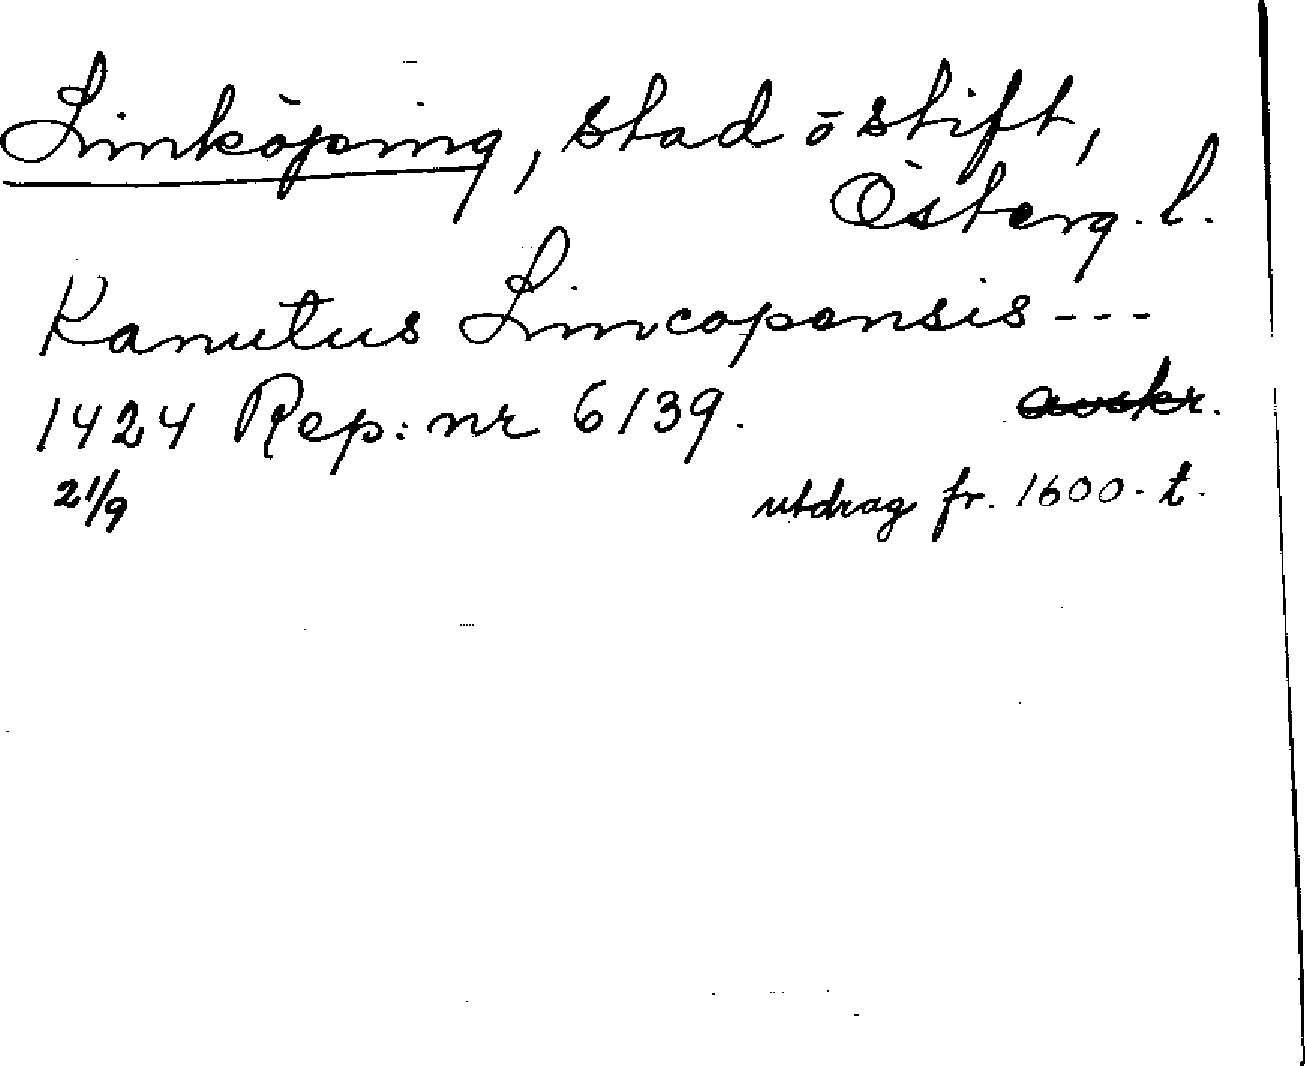 Linköping, stad o stift,
Österg. l.
Kanutus Lincopensis ---
1424 Rep. nr 6139. avskr.
21/9 utdrag fr. 1600-t.